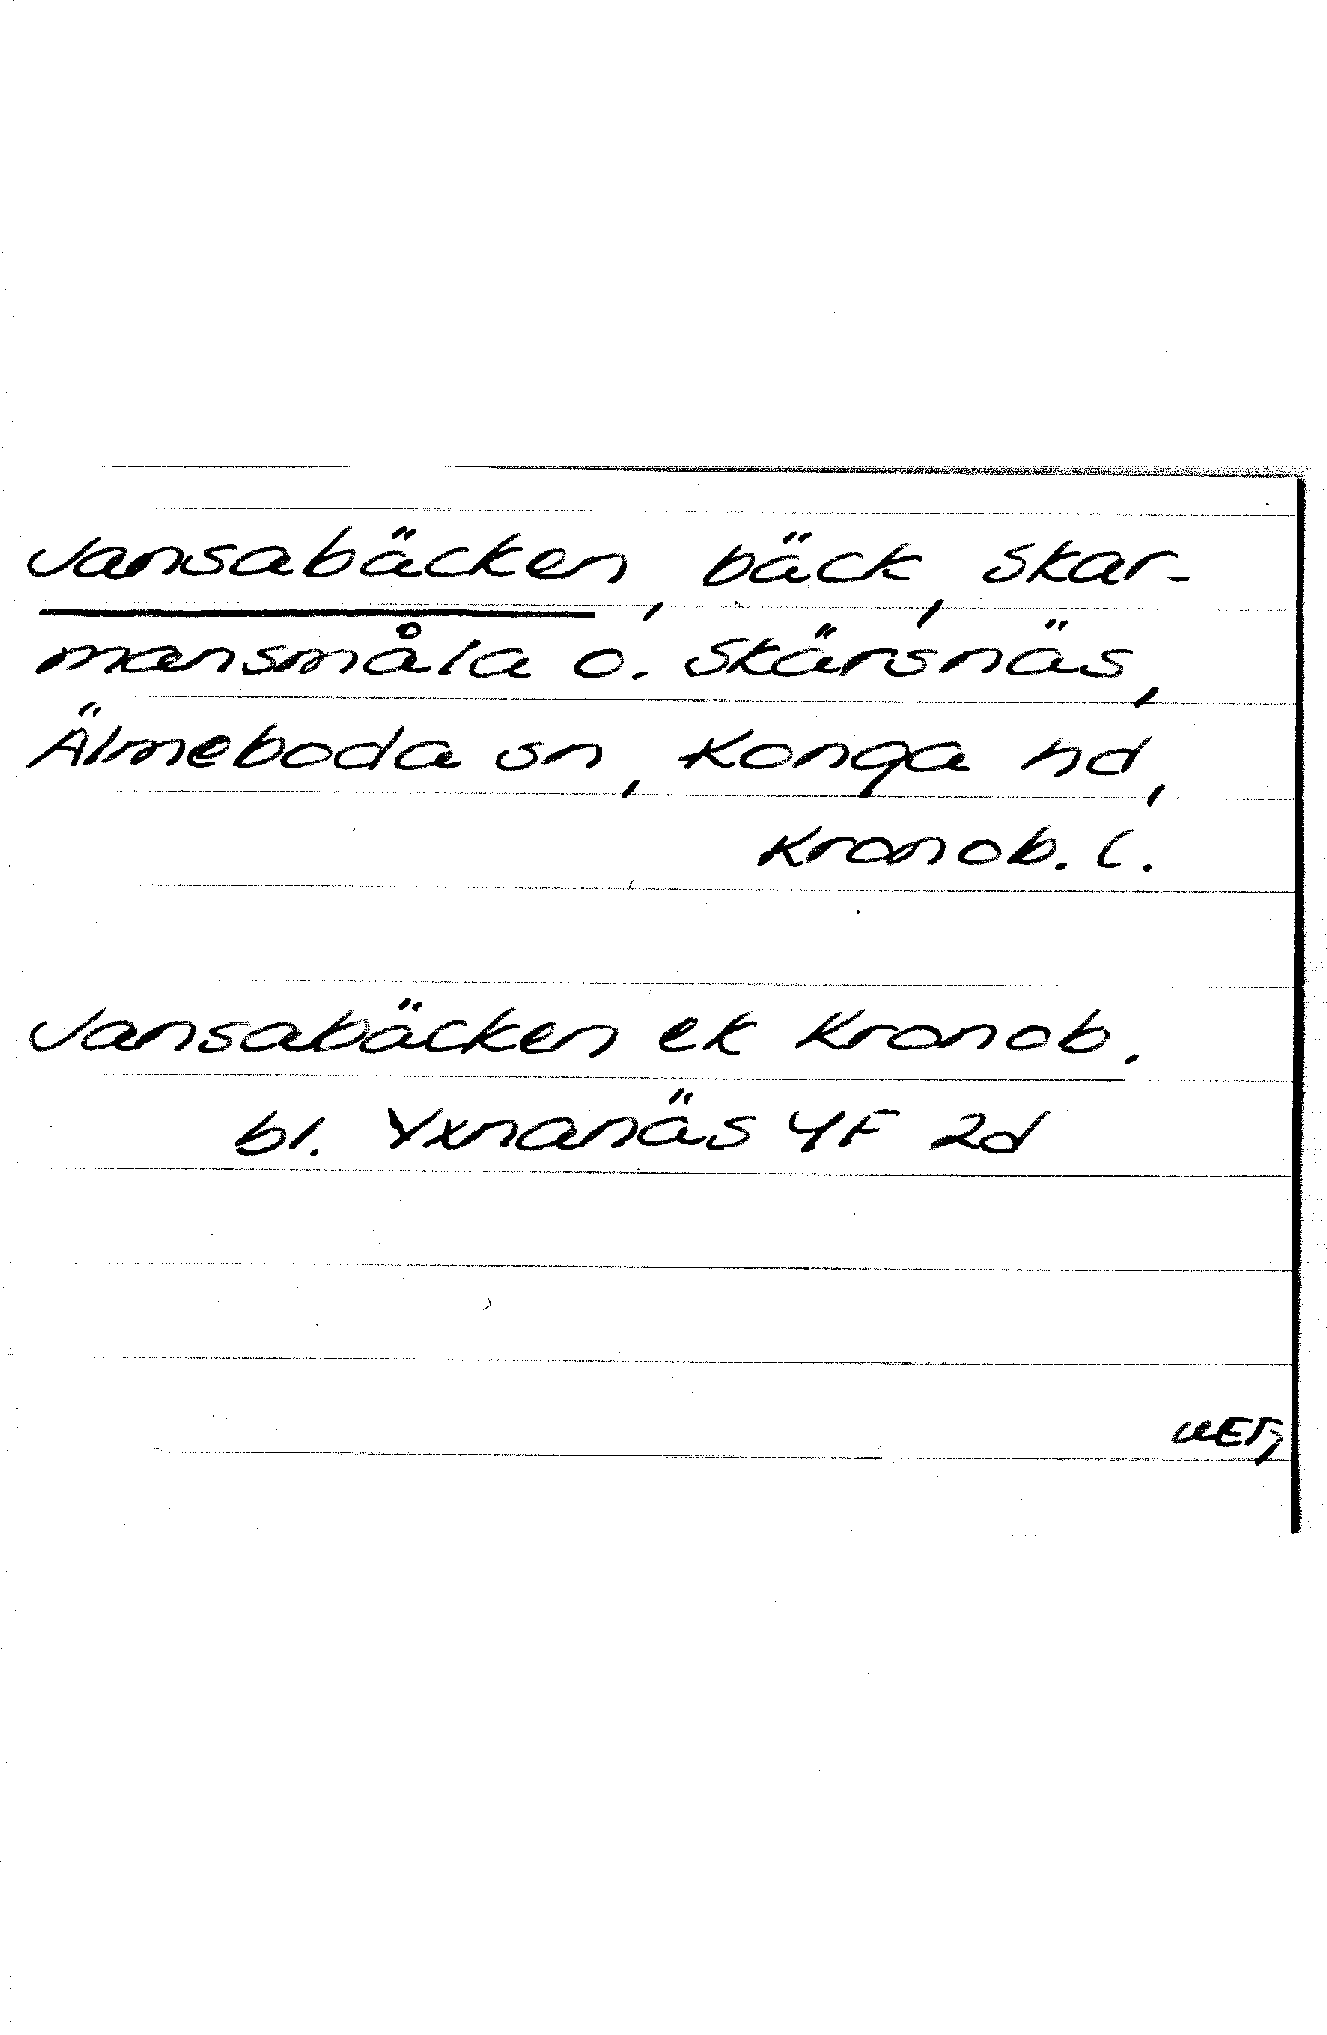 Jansabäcken, bäck, Skar-
mansmåla o. Skärsnäs,
Älmeboda sn, Konga hd,
Kronob. l.
Jansabäcken ek Kronob.
bl. Yxnanäs 4F 2d